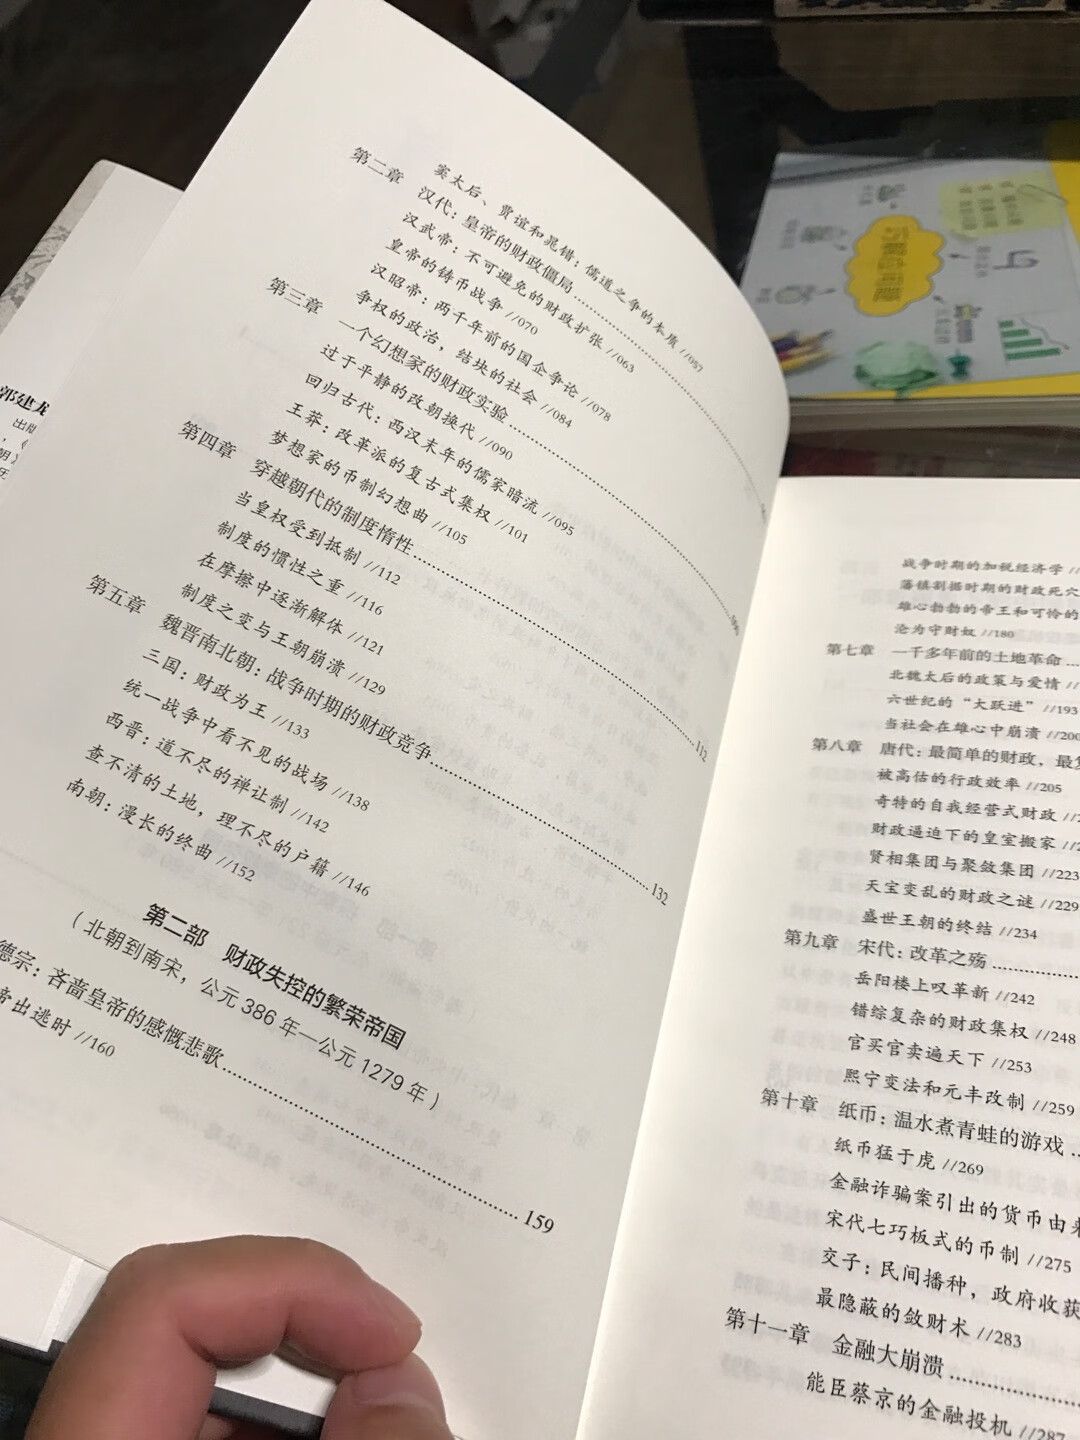 窦太后、贾谊和晁错：儒道之争的本质 //057
第二章 汉代：皇帝的财政僵局
汉武帝：不可避免的财政扩张 //063
皇帝的铸币战争 //070
汉昭帝：两千年前的国企争论 //078
争权的政治，结块的社会 //084
第三章 一个幻想家的财政实验
过于平静的改朝换代 //090
回归古代：西汉末年的儒家暗流 //095
王莽：改革派的复古式集权 //101
梦想家的币制幻想曲 //105
第四章 穿越朝代的制度惰性 112
当皇权受到抵制 //112
制度的惯性之重 //116
在摩擦中逐渐解体 //121
制度之变与王朝崩溃 //129
第五章 魏晋南北朝：战争时期的财政竞争 132
三国：财政为王 //133
统一战争中看不见的战场 //138
西晋：道不尽的禅让制 //142
查不清的土地，理不尽的户籍 //146
南朝：漫长的终曲 //152
第二部 财政失控的繁荣帝国
（北朝到南宋，公元386年—公元1279年）
德宗：吝啬皇帝的感慨悲歌 159
帝出逃时 //160
战争时期的加税经济学 //
藩镇割据时期的财政死穴
雄心勃勃的帝王和可怜的
沦为守财奴 //180
第七章 一千多年前的土地革命
北魏太后的政策与爱情 //
六世纪的“大跃进” //193
当社会在雄心中崩溃 //200
第八章 唐代：最简单的财政，最
被高估的行政效率 //205
奇特的自我经营式财政 //
财政逼迫下的皇室搬家 //
贤相集团与聚敛集团 //223
天宝变乱的财政之谜 //229
盛世王朝的终结 //234
第九章 宋代：改革之殇
岳阳楼上叹革新 //242
错综复杂的财政集权 //248
官买官卖遍天下 //253
熙宁变法和元丰改制 //259
第十章 纸币：温水煮青蛙的游戏
纸币猛于虎 //269
金融诈骗案引出的货币由来
宋代七巧板式的币制 //275
交子：民间播种，政府收获
最隐蔽的敛财术 //283
第十一章 金融大崩溃
能臣蔡京的金融投机 //287
郭建龙
巧解应用题